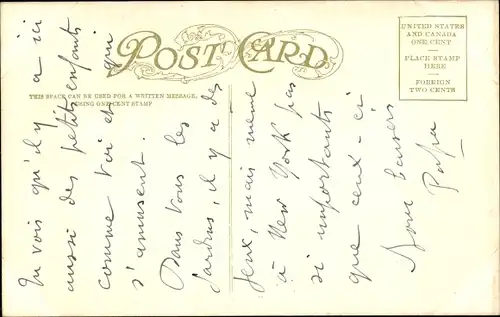 POST CARD
THIS SPACE CAN BE USED FOR A WRITTEN MESSAGE,
USING ONE CENT STAMP
UNITED STATES
AND CANADA
ONE CENT
PLACE STAMP
HERE
FOREIGN
TWO CENTS
Tu vois qu'il y a ici
aussi des petits enfants
comme toi et qui
s'amusent.
Dans tous les
Jardins, il y a des
jeux, mais même
à New York pas
si importants
que ceux-ci
baisers
Papa